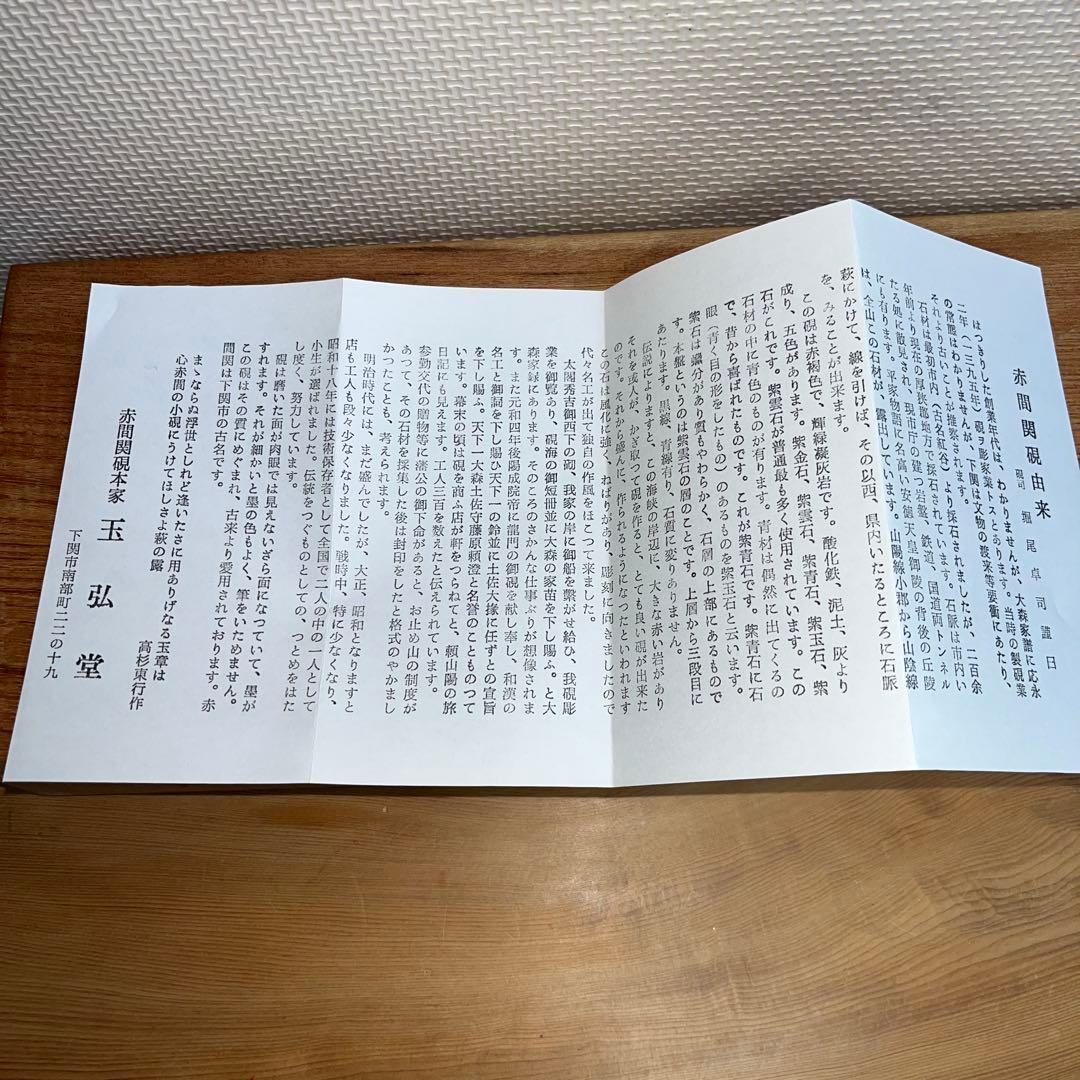 赤間関硯由来
硯司 堀尾卓司 謹白
はっきりした創業年代は、わかりませんが、大森家譜に応永
二年(一三九五年)硯ヲ彫家業トスとあります。当時の製硯業
の常態はわかりませんが、下関は文物の渡来等要衝にあたり、
それより古いことが推察されます。
石材は最初市内、(古名紅谷)より採石されましたが、二百余
年前より現在の厚狭臨地方で採石されています。石脈は市内い
たる処に散見され、現市庁の建つ岩盤、鉄道、国道両トンネル
にも有ります。平家物語に名高い安徳天皇御陵の背後の丘陵
は、全山この石材が、露出しています。山陽線小郡から山陰線
萩にかけて、線を引けば、その以西、県内いたるところに石脈
を、みることが出来ます。
この硯は赤褐色で、輝緑凝灰岩です。酸化鉄、泥土、灰より
成り、五色があります。紫金石、紫雲石、紫青石、紫玉石、紫
石がこれです。紫雲石が普通最も多く使用されています。この
石材の中に青色のものが有ります。青材は偶然に出てくるの
で、昔から喜ばれたものです。これが紫青石です。紫青石に石
眼(青く目の形をしたもの)のあるものを紫玉石と云います。
紫石は鉱分があり質もやわらかく、石層の上部にあるもので
す。本盤というのは紫雲石の層のことです。上層から三段目に
あたります。黒線、青線有り、石質に変りありません。
伝説によりますと、この海峡の岸辺に、大きな赤い岩があり
それを或人が、かぎ取って硯を作ると、とても良い硯が出来た
のです。それから盛んに、作れるようになつたといわれます
この石は風化に強く、ねばりがあり、彫刻に向きましたので
代々名工が出て独自の作風をほこつて来ました。
太閤秀吉御西下の砌、我家の岸に御船を繋がせ給ひ、我硯彫
業を御覧あり、硯海の御短冊並に大森の家苗を下し賜ふ。と大
森家録にあります。そのころのさかんな仕事ぶりが想像されま
す。また元和四年後陽成院帝に龍門の御硯を献し奉し、和漢の
名工と御詞を下し賜ひ天下一の鈴並に土佐大掾に任ずとの宣旨
を下し賜ふ。天下一大森土佐守藤原頼澄と名誉のこともつて
います。幕末の頃は硯を商ふ店が軒をつらねてと、頼山陽の旅
日記にも見えます。工人三百を数えたと伝えられています。
参勤交代の贈物等に藩公の御下命があると、お止め山の制度が
あつて、その石材を採集した後は封印をしたと格式のやかまし
かつたことも、考えられます。
明治時代には、まだ盛んでしたが、大正、昭和となりますと
店も工人も段々少なくなりました。戦時中、特に少なくなり、
昭和十八年には技術保存者として全国で二人の中の一人として
小生が選ばれました。伝統をつぐものとしての、つとめをはた
し度く、努力しています。
硯は磨いた面が肉眼では見えないいざら面になつていて、墨が
すれます。それが細かいと墨の色もよく、筆をいためません。
この硯はその質にめぐまれ、古来より愛用されております。赤
間関は下関市の古名です。
まゝならぬ浮世としれど逢いたさに用ありげなる玉章は
心赤間の小硯にうけてほしさよ萩の露
高杉東行作
赤間関硯本家 玉弘堂
下関市南部町二二の十九